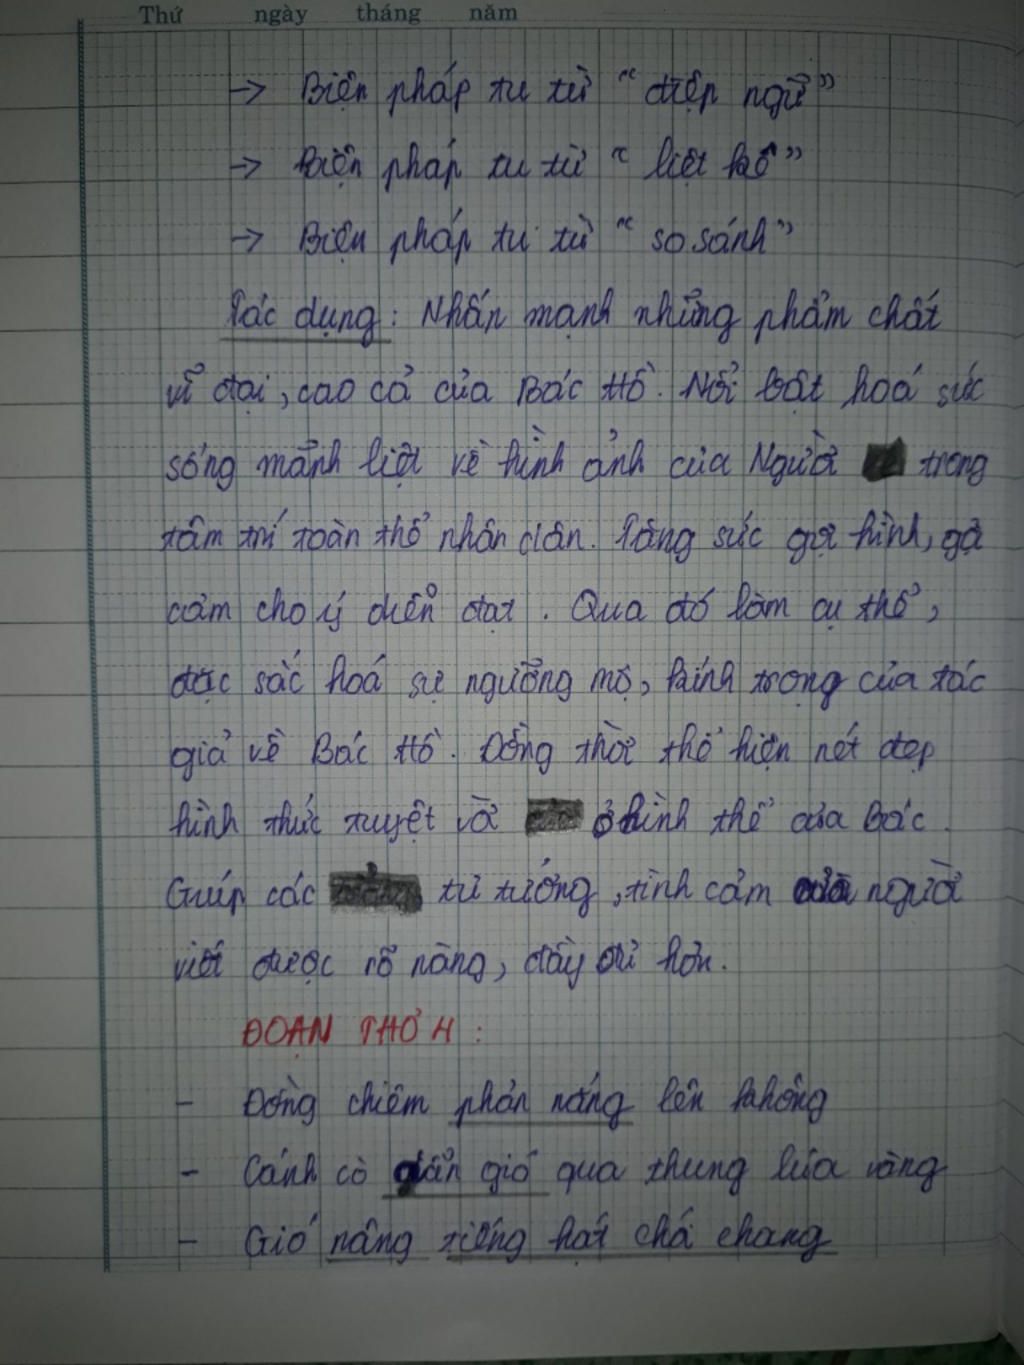 Thứ ngày tháng năm
→ Biện pháp tu từ "điệp ngữ"
→ Biện pháp tu từ "liệt kê"
→ Biện pháp tu từ "so sánh"
Tác dụng: Nhấn mạnh những phẩm chất
vĩ đại, cao cả của Bác Hồ. Nổi bật hoá sức
sống mãnh liệt về hình ảnh của Người trong
tâm trí toàn thể nhân dân. Tăng sức gợi hình, gợi
cảm cho ý diễn đạt. Qua đó làm cụ thể,
đặc sắc hoá sự ngưỡng mộ, kính trọng của tác
giả về Bác Hồ. Đồng thời thể hiện nét đẹp
hình thức tuyệt vời ở hình thể của Bác.
Giúp các tư tưởng, tình cảm của người
viết được rõ ràng, đầy đủ hơn.
ĐOẠN THƠ 4:
- Đồng chiêm phả nắng lên không
- Cánh cò dẫn gió qua thung lúa vàng
- Gió nâng tiếng hát chói chang